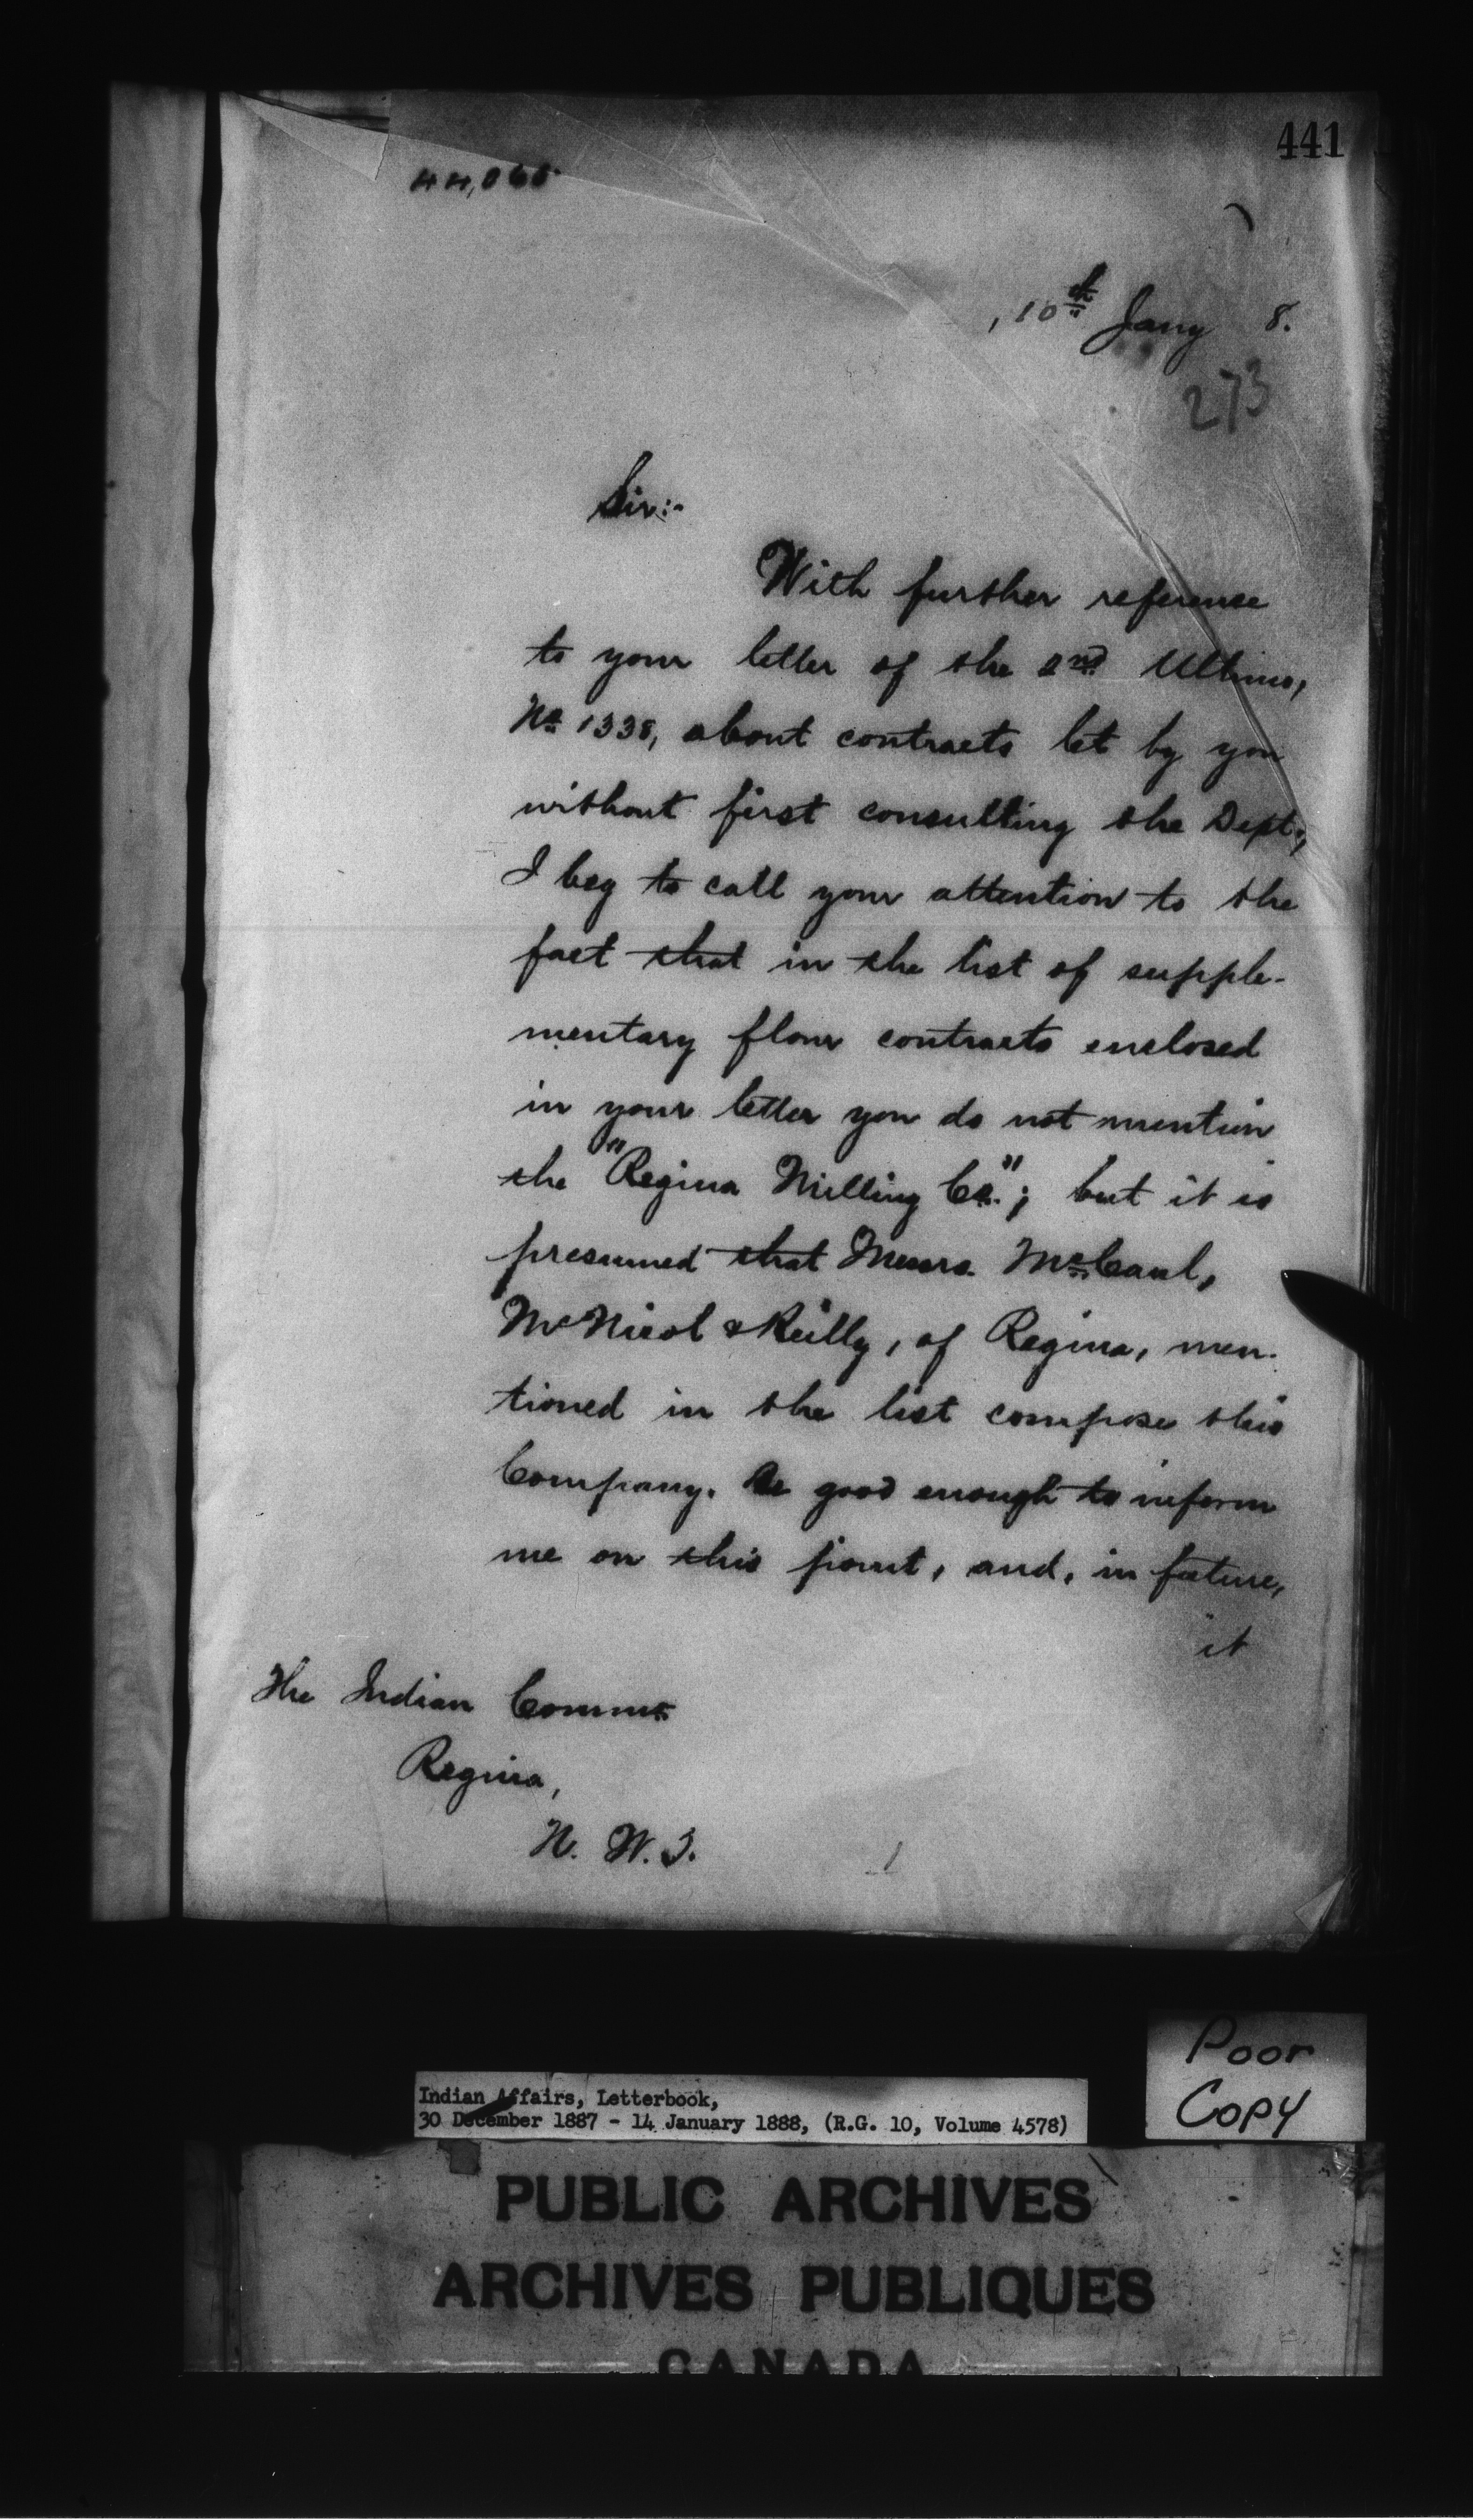 441
44,065
, 10th Jany 8.
273
Sir:-
With further reference
to your letter of the 2nd Ultimo,
No. 1338, about contracts let by you
without first consulting the Dept.,
I beg to call your attention to the
fact that in the list of supple-
mentary flour contracts enclosed
in your letter you do not mention
the "Regina Milling Co."; but it is
presumed that Messrs. McCaul,
McNicol & Reilly, of Regina, men-
tioned in the list compose this
Company. Be good enough to inform
me on this point, and, in future,
it
The Indian Commr.
Regina,
N. W. T.
Poor
Copy
Indian Affairs, Letterbook,
30 December 1887 - 14 January 1888, (R.G. 10, Volume 4578)
PUBLIC ARCHIVES
ARCHIVES PUBLIQUES
CANADA